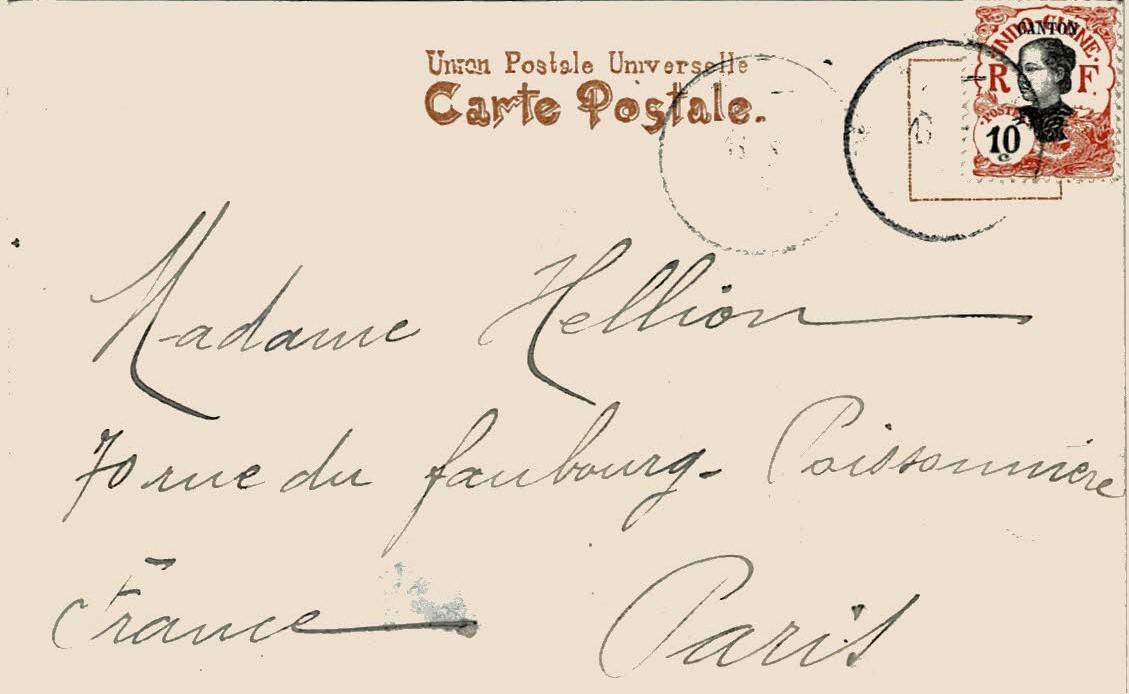 Union Postale Universelle
Carte Postale.
INDO-CHINE
CANTON
R F
POSTES
10
c
Madame Hellion
70 rue du faubourg- Poissonnière
France
Paris